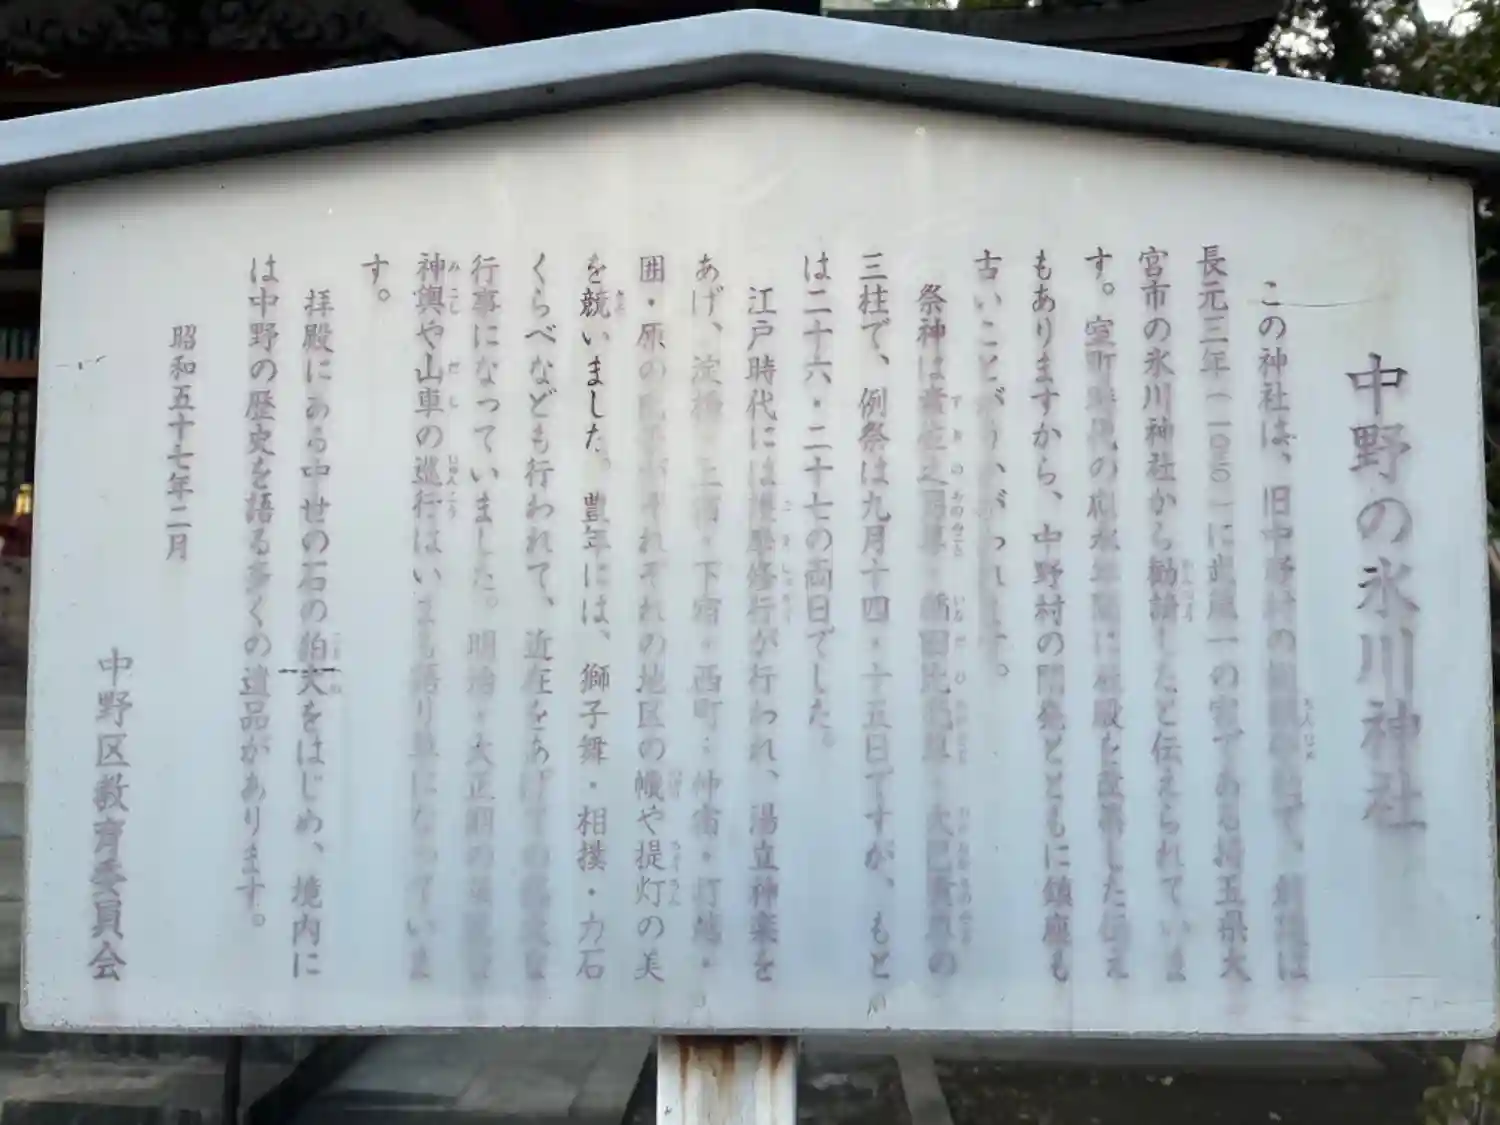 中野の氷川神社
この神社は、旧中野村の総鎮守社で、創建は
長元三年(一〇三〇)に武蔵一の宮である埼玉県大
宮市の氷川神社から勧請したと伝えられていま
す。室町時代の応永年間に社殿を改築した伝え
もありますから、中野村の開発とともに鎮座も
古いことがうかがわれます。
祭神は須佐之男尊・稲田比売尊・大己貴尊の
三柱で、例祭は九月十四・十五日ですが、もと
は二十六・二十七の両日でした。
江戸時代には護摩修行が行われ、湯立神楽を
あげ、淀橋・上宿・下宿・西町・仲宿・打越・
囲・原の氏子がそれぞれの地区の幟や提灯の美
を競いました。豊年には、獅子舞・相撲・力石
くらべなども行われて、近在をあげての
行事になっていました。明治・大正期の
神輿や山車の巡行はいまも語り草になっていま
す。
拝殿にある中世の石の狛犬をはじめ、境内に
は中野の歴史を語る多くの遺品があります。
昭和五十七年二月
中野区教育委員会